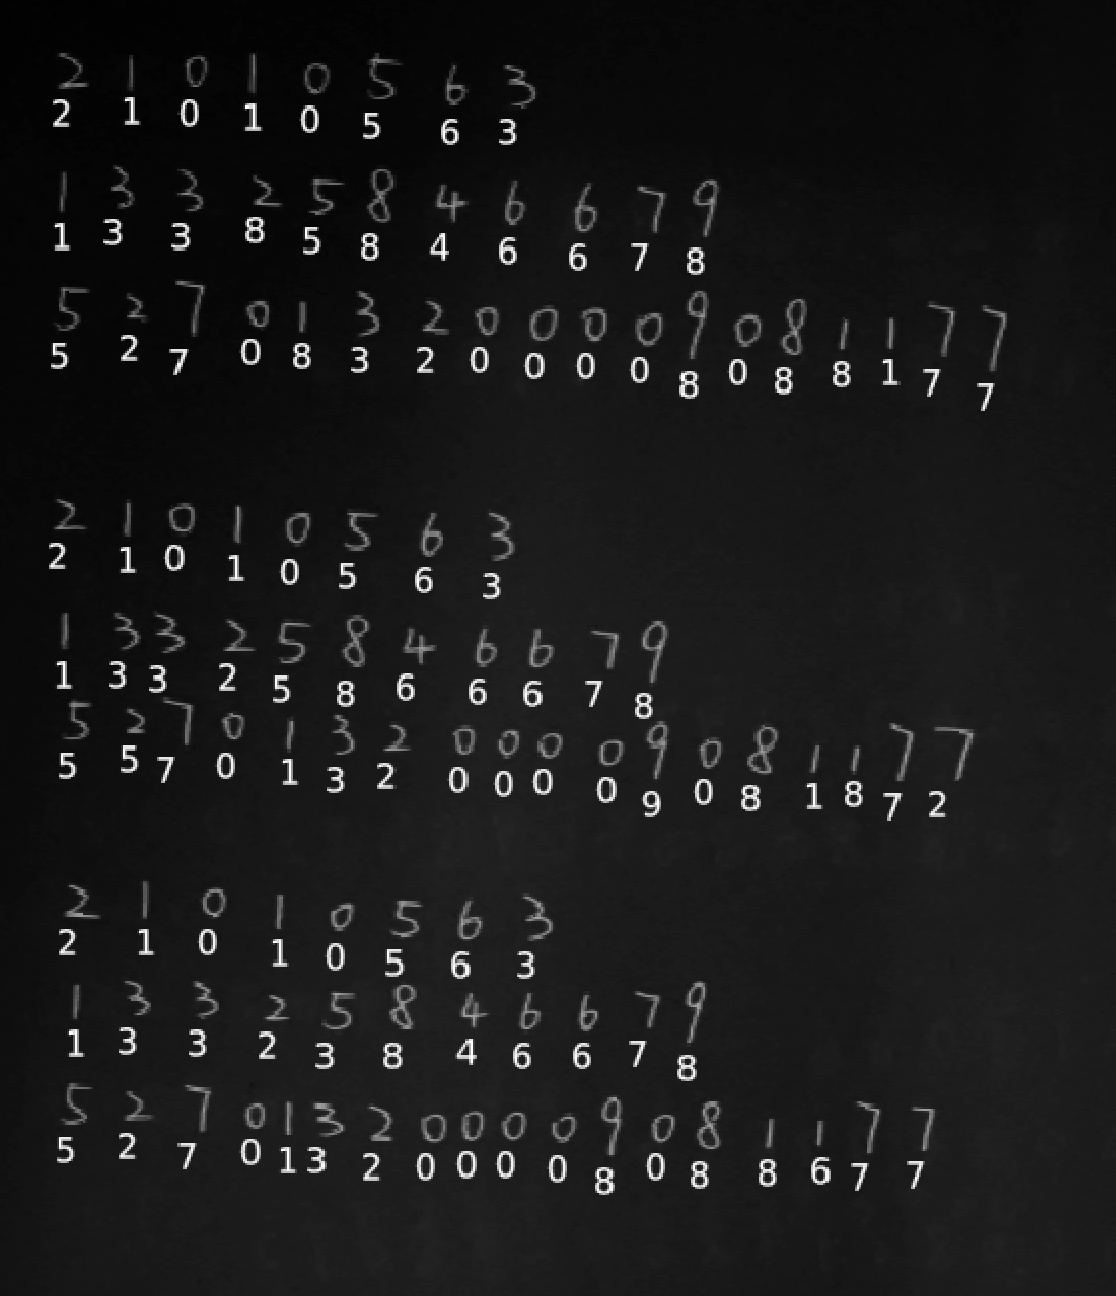 2 1 0 1 0 5 6 3
2 1 0 1 0 5 6 3
1 3 3 2 5 8 4 6 6 7 9
1 3 3 8 5 8 4 6 6 7 8
5 2 7 0 1 3 2 0 0 0 0 9 0 8 1 1 7 7
5 2 7 0 8 3 2 0 0 0 0 8 0 8 8 1 7 7
2 1 0 1 0 5 6 3
2 1 0 1 0 5 6 3
1 3 3 2 5 8 4 6 6 7 9
1 3 3 2 5 8 6 6 6 7 8
5 2 7 0 1 3 2 0 0 0 0 9 0 8 1 1 7 7
5 5 7 0 1 3 2 0 0 0 0 9 0 8 1 8 7 2
2 1 0 1 0 5 6 3
2 1 0 1 0 5 6 3
1 3 3 2 5 8 4 6 6 7 9
1 3 3 2 3 8 4 6 6 7 8
5 2 7 0 1 3 2 0 0 0 0 9 0 8 1 1 7 7
5 2 7 0 1 3 2 0 0 0 0 8 0 8 8 6 7 7